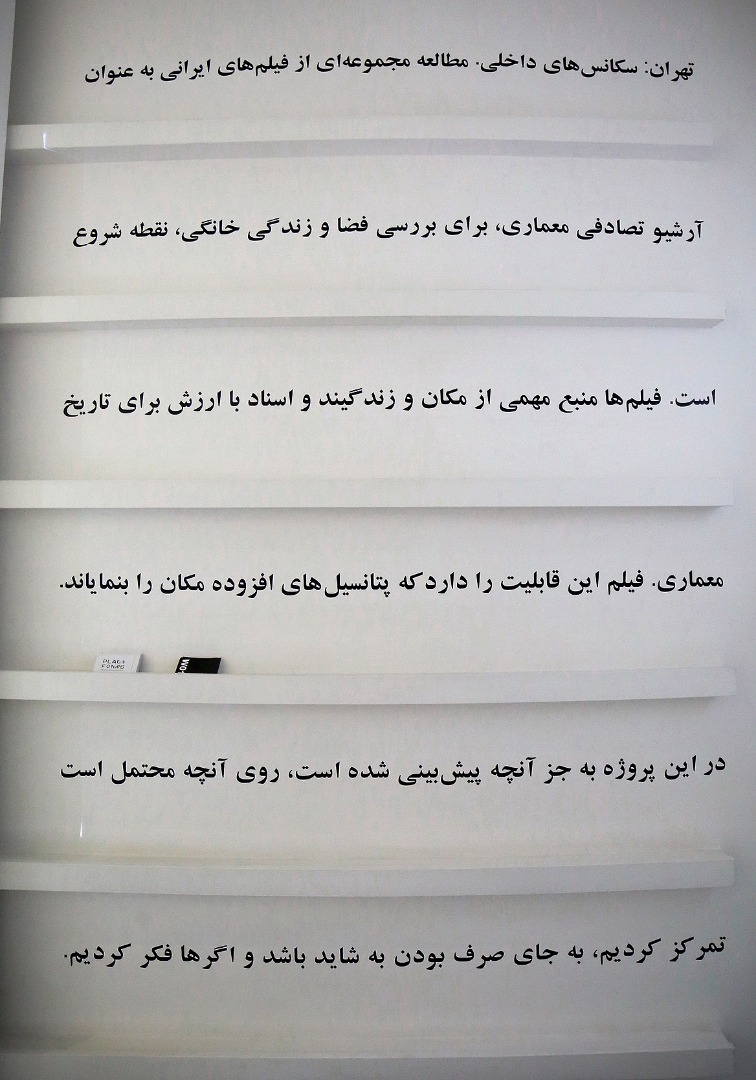 تهران: سکانس‌های داخلی. مطالعه مجموعه‌ای از فیلم‌های ایرانی به عنوان
آرشیو تصادفی معماری، برای بررسی فضا و زندگی خانگی، نقطه شروع
است. فیلم‌ها منبع مهمی از مکان و زندگیند و اسناد با ارزش برای تاریخ
معماری. فیلم این قابلیت را دارد که پتانسیل‌های افزوده مکان را بنمایاند.
در این پروژه به جز آنچه پیش‌بینی شده است، روی آنچه محتمل است
تمرکز کردیم، به جای صرف بودن به شاید باشد و اگرها فکر کردیم.